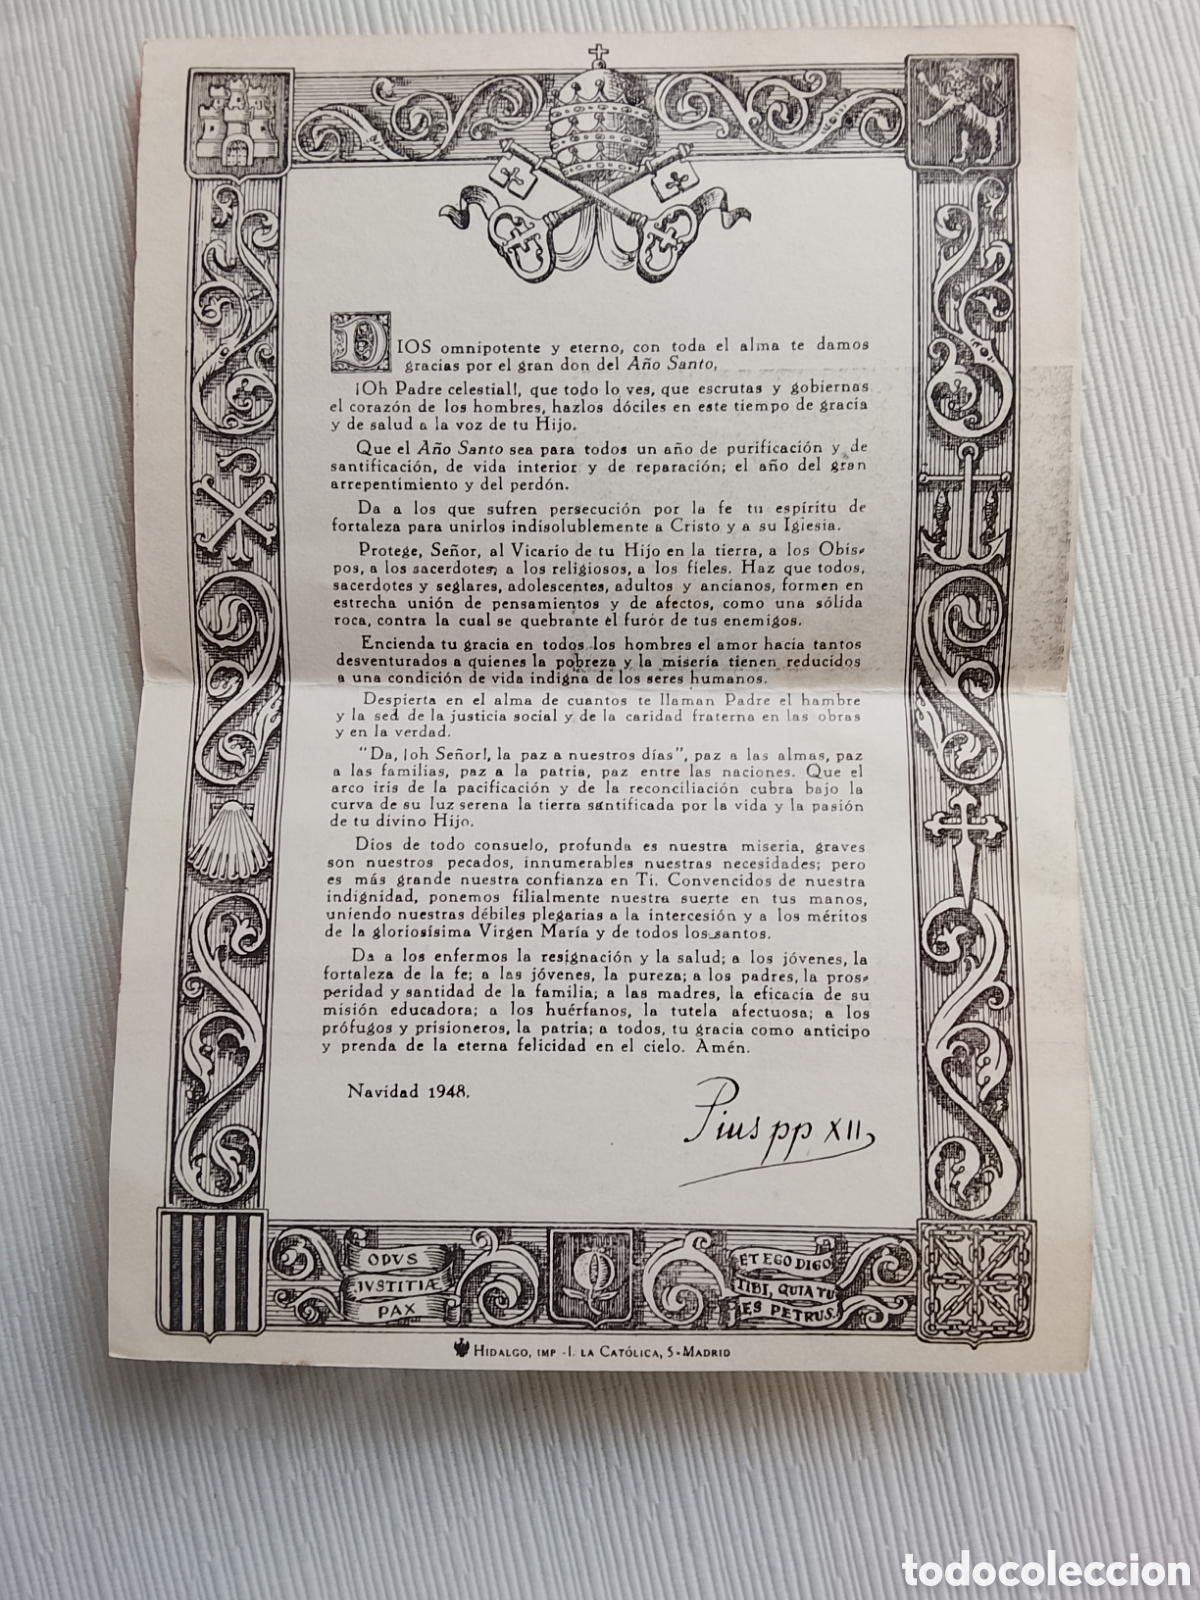 DIOS omnipotente y eterno, con toda el alma te damos
gracias por el gran don del Año Santo,
¡Oh Padre celestial!, que todo lo ves, que escrutas y gobiernas
el corazón de los hombres, hazlos dóciles en este tiempo de gracia
y de salud a la voz de tu Hijo.
Que el Año Santo sea para todos un año de purificación y de
santificación, de vida interior y de reparación; el año del gran
arrepentimiento y del perdón.
Da a los que sufren persecución por la fe tu espíritu de
fortaleza para unirlos indisolublemente a Cristo y a su Iglesia.
Protege, Señor, al Vicario de tu Hijo en la tierra, a los Obis-
pos, a los sacerdotes, a los religiosos, a los fieles. Haz que todos,
sacerdotes y seglares, adolescentes, adultos y ancianos, formen en
estrecha unión de pensamientos y de afectos, como una sólida
roca, contra la cual se quebrante el furor de tus enemigos.
Encienda tu gracia en todos los hombres el amor hacia tantos
desventurados a quienes la pobreza y la miseria tienen reducidos
a una condición de vida indigna de los seres humanos.
Despierta en el alma de cuantos te llaman Padre el hambre
y la sed de la justicia social y de la caridad fraterna en las obras
y en la verdad.
"Da, ¡oh Señor!, la paz a nuestros días", paz a las almas, paz
a las familias, paz a la patria, paz entre las naciones. Que el
arco iris de la pacificación y de la reconciliación cubra bajo la
curva de su luz serena la tierra santificada por la vida y la pasión
de tu divino Hijo.
Dios de todo consuelo, profunda es nuestra miseria, graves
son nuestros pecados, innumerables nuestras necesidades; pero
es más grande nuestra confianza en Ti. Convencidos de nuestra
indignidad, ponemos filialmente nuestra suerte en tus manos,
uniendo nuestras débiles plegarias a la intercesión y a los méritos
de la gloriosísima Virgen María y de todos los santos.
Da a los enfermos la resignación y la salud; a los jóvenes, la
fortaleza de la fe; a las jóvenes, la pureza; a los padres, la pros-
peridad y santidad de la familia; a las madres, la eficacia de su
misión educadora; a los huérfanos, la tutela afectuosa; a los
prófugos y prisioneros, la patria; a todos, tu gracia como anticipo
y prenda de la eterna felicidad en el cielo. Amén.
Navidad 1948.
Pius pp XII,
OPVS
IVSTITIÆ
PAX
ET EGO DIGO
TIBI, QUIA TU
ES PETRUS.
HIDALGO, IMP -I. LA CATÓLICA, 5-MADRID
todocoleccion